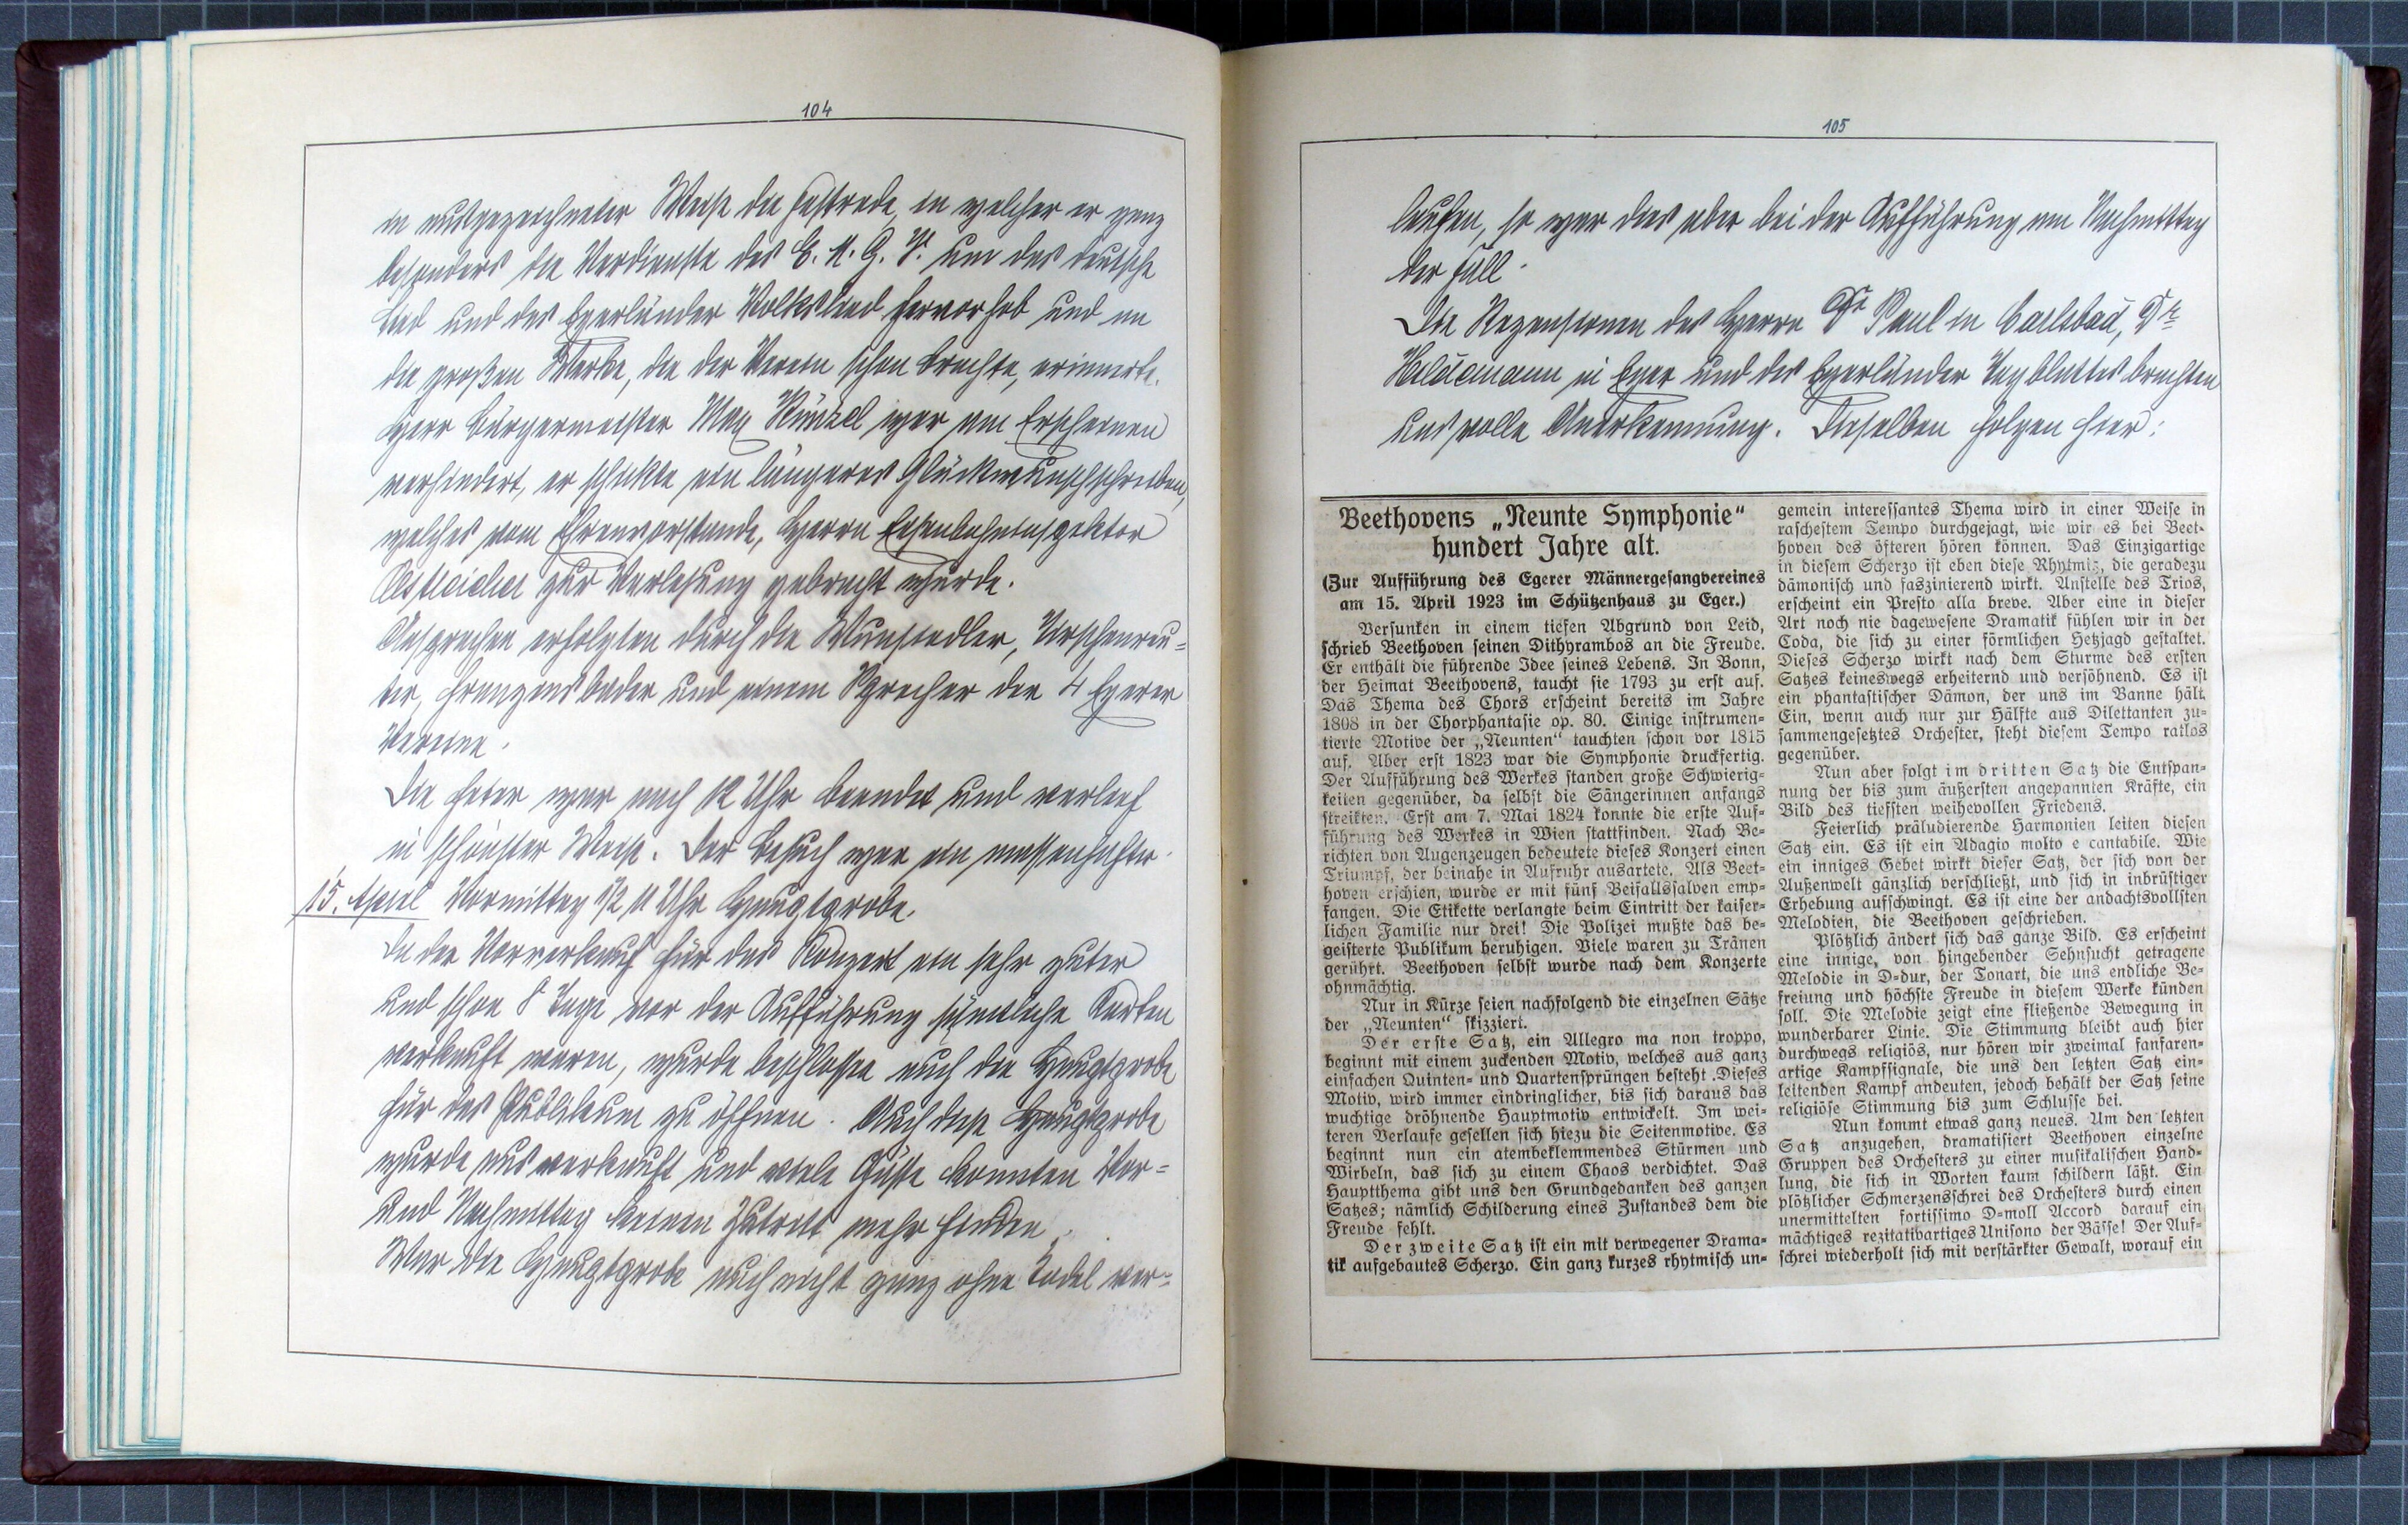 104
in ausgezeichneter Weise die Festrede, in welcher er ganz
besonders die Verdienste des E. M. G. V. um das deutsche
Lied und das Egerländer Volkslied hervorhob und an
die großen Werke, die der Verein schon brachte, erinnerte.
Herr Bürgermeister Max Künzel war am Erscheinen
verhindert, er schickte ein längeres Glückwunschschreiben,
welches vom Ehrenvorstande, Herrn Eisenbahninspektor
zur Verlesung gebracht wurde.
Ansprachen erfolgten durch die Wunsiedler, Tirschenreu-
ter, Franzensbader und einem Sprecher der 4 Egerer
Vereine.
Die Feier war nach 12 Uhr beendet und verlief
in schönster Weise. Der Besuch war ein massenhafter.
15. April Vormittag 1/2 11 Uhr Hauptprobe.
Da der Vorverkauf für das Konzert ein sehr guter
und schon 8 Tage vor der Aufführung sämtliche Karten
verkauft waren, wurde beschlossen auch die Hauptprobe
für das Publikum zu öffnen. Auch diese Hauptprobe
wurde ausverkauft und viele Gäste konnten Vor-
und Nachmittag keinen Zutritt mehr finden.
War die Hauptprobe auch nicht ganz ohne Tadel ver-
105
laufen, so war dies aber bei der Aufführung am Nachmittag
der Fall.
Die Rezensionen des Herrn Dr Paul in Carlsbad, Dr
Hildemann in Eger und des Egerländer Tagblattes brachten
uns volle Anerkennung. Dieselben folgen hier:
Beethovens „Neunte Symphonie“
hundert Jahre alt.
(Zur Aufführung des Egerer Männergesangvereines
am 15. April 1923 im Schützenhaus zu Eger.)
Versunken in einem tiefen Abgrund von Leid,
schrieb Beethoven seinen Dithyrambos an die Freude.
Er enthält die führende Idee seines Lebens. In Bonn,
der Heimat Beethovens, taucht sie 1793 zu erst auf.
Das Thema des Chors erscheint bereits im Jahre
1808 in der Chorphantasie op. 80. Einige instrumen-
tierte Motive der „Neunten“ tauchten schon vor 1815
auf. Aber erst 1823 war die Symphonie druckfertig.
Der Aufführung des Werkes standen große Schwierig-
keiten gegenüber, da selbst die Sängerinnen anfangs
streikten. Erst am 7. Mai 1824 konnte die erste Auf-
führung des Werkes in Wien stattfinden. Nach Be-
richten von Augenzeugen bedeutete dieses Konzert einen
Triumpf, der beinahe in Aufruhr ausartete. Als Beet-
hoven erschien, wurde er mit fünf Beifallssalven emp-
fangen. Die Etikette verlangte beim Eintritt der kaiser-
lichen Familie nur drei! Die Polizei mußte das be-
geisterte Publikum beruhigen. Viele waren zu Tränen
gerührt. Beethoven selbst wurde nach dem Konzerte
ohnmächtig.
Nur in Kürze seien nachfolgend die einzelnen Sätze
der „Neunten“ skizziert.
Der erste Satz, ein Allegro ma non troppo,
beginnt mit einem zuckenden Motiv, welches aus ganz
einfachen Quinten- und Quartensprüngen besteht .Dieses
Motiv, wird immer eindringlicher, bis sich daraus das
wuchtige dröhnende Hauptmotiv entwickelt. Im wei-
teren Verlaufe gesellen sich hiezu die Seitenmotive. Es
beginnt nun ein atembeklemmendes Stürmen und
Wirbeln, das sich zu einem Chaos verdichtet. Das
Hauptthema gibt uns den Grundgedanken des ganzen
Satzes; nämlich Schilderung eines Zustandes dem die
Freude fehlt.
Der zweite Satz ist ein mit verwegener Drama-
tik aufgebautes Scherzo. Ein ganz kurzes rhytmisch un-
gemein interessantes Thema wird in einer Weise in
raschestem Tempo durchgejagt, wie wir es bei Beet-
hoven des öfteren hören können. Das Einzigartige
in diesem Scherzo ist eben diese Rhytmik, die geradezu
dämonisch und faszinierend wirkt. Anstelle des Trios,
erscheint ein Presto alla breve. Aber eine in dieser
Art noch nie dagewesene Dramatik fühlen wir in der
Coda, die sich zu einer förmlichen Hetzjagd gestaltet.
Dieses Scherzo wirkt nach dem Sturme des ersten
Satzes keineswegs erheiternd und versöhnend. Es ist
ein phantastischer Dämon, der uns im Banne hält.
Ein, wenn auch nur zur Hälfte aus Dilettanten zu-
sammengesetztes Orchester, steht diesem Tempo ratlos
gegenüber.
Nun aber folgt im dritten Satz die Entspan-
nung der bis zum äußersten angepannten Kräfte, ein
Bild des tiefsten weihevollen Friedens.
Feierlich präludierende Harmonien leiten diesen
Satz ein. Es ist ein Adagio molto e cantabile. Wie
ein inniges Gebet wirkt dieser Satz, der sich von der
Außenwelt gänzlich verschließt, und sich in inbrüstiger
Erhebung aufschwingt. Es ist eine der andachtsvollsten
Melodien, die Beethoven geschrieben.
Plötzlich ändert sich das ganze Bild. Es erscheint
eine innige, von hingebender Sehnsucht getragene
Melodie in D-dur, der Tonart, die uns endliche Be-
freiung und höchste Freude in diesem Werke künden
soll. Die Melodie zeigt eine fließende Bewegung in
wunderbarer Linie. Die Stimmung bleibt auch hier
durchwegs religiös, nur hören wir zweimal fanfaren-
artige Kampfsignale, die uns den letzten Satz ein-
leitenden Kampf andeuten, jedoch behält der Satz seine
religiöse Stimmung bis zum Schlusse bei.
Nun kommt etwas ganz neues. Um den letzten
Satz anzugehen, dramatisiert Beethoven einzelne
Gruppen des Orchesters zu einer musikalischen Hand-
lung, die sich in Worten kaum schildern läßt. Ein
plötzlicher Schmerzensschrei des Orchesters durch einen
unermittelten fortissimo D-moll Accord darauf ein
mächtiges rezitativartiges Unisono der Bässe! Der Auf-
schrei wiederholt sich mit verstärkter Gewalt, worauf ein